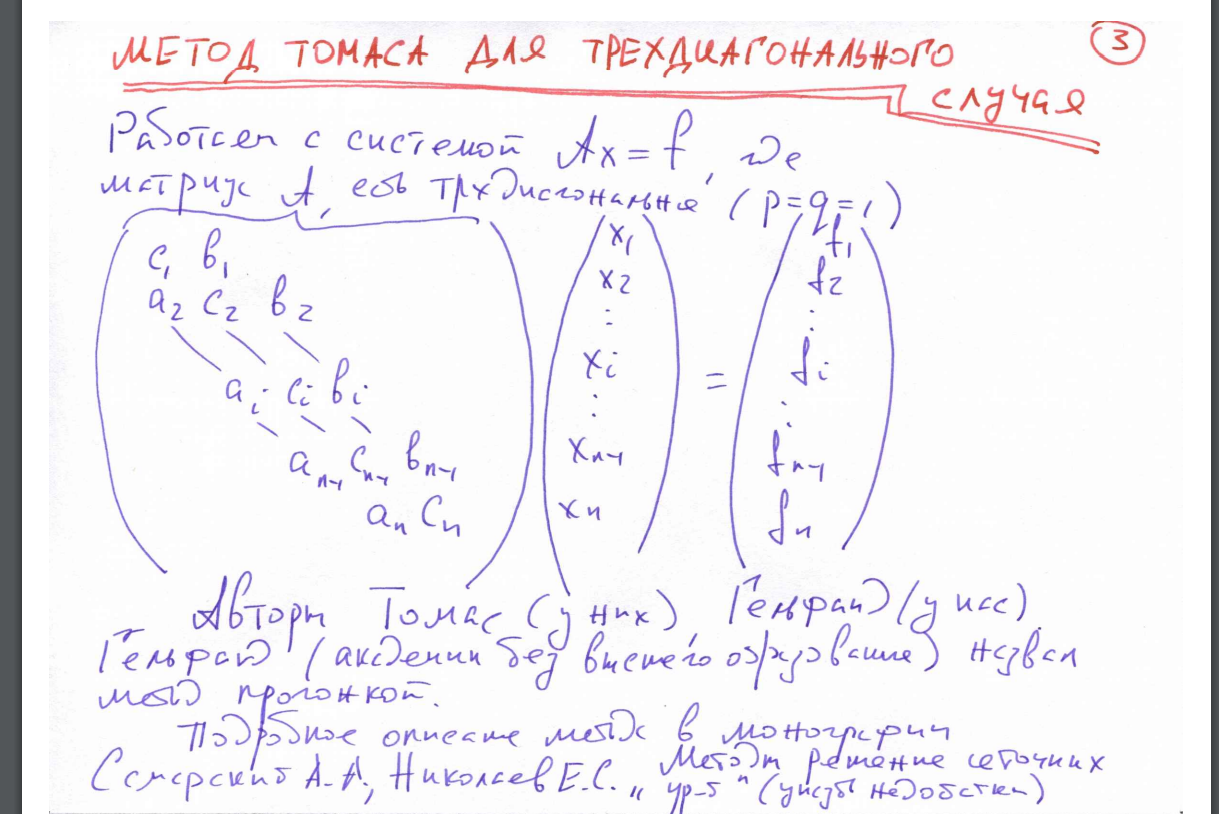 МЕТОД ТОМАСА ДЛЯ ТРЕХДИАГОНАЛЬНОГО
3
СЛУЧАЯ
Работаем с системой Ax = f, где
матрица A, есть трехдиагональная (p=q=1)
c₁ b₁
a₂ c₂ b₂
aᵢ cᵢ bᵢ
aₙ₋₁ cₙ₋₁ bₙ₋₁
aₙ cₙ
x₁
x₂
⋮
xᵢ
⋮
xₙ₋₁
xₙ
=
f₁
f₂
⋮
fᵢ
⋮
fₙ₋₁
fₙ
Авторы Томас (у них), Гельфанд (у нас).
Гельфанд (академик без высшего образования) назвал
метод прогонкой.
Подробное описание метода в монографии
Самарский А.А., Николаев Е.С. „Методы решения сеточных
ур-й" (указы недостатки)